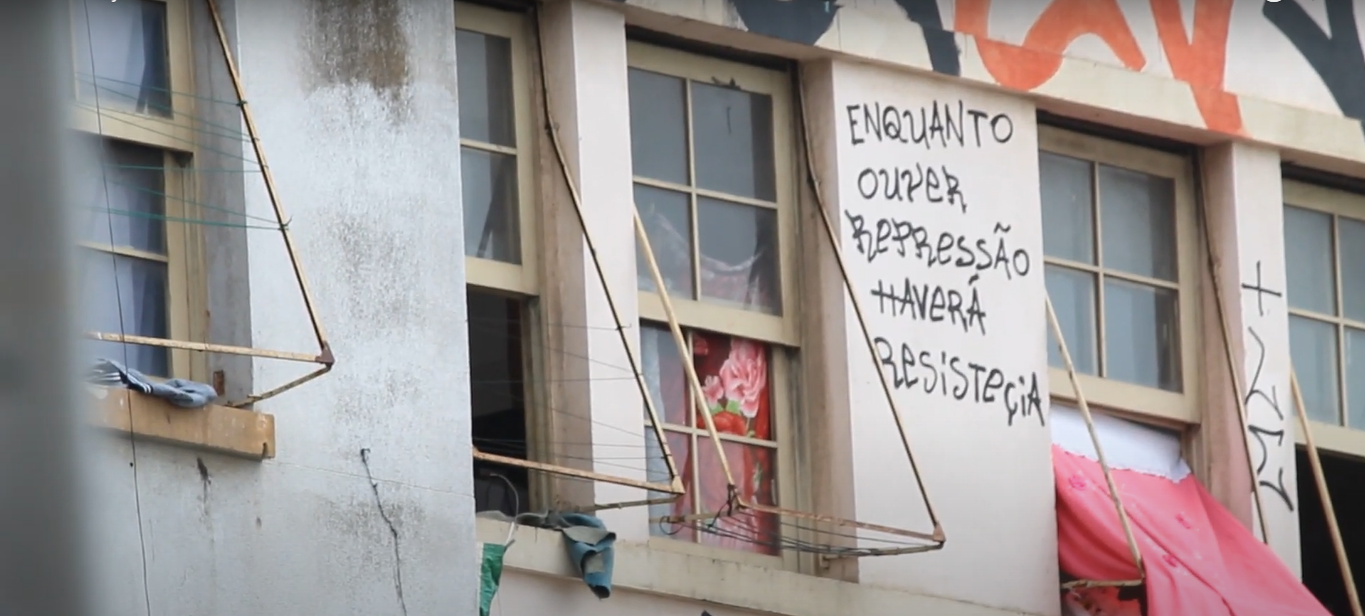 ENQUANTO
OUVER
REPRESSÃO
HAVERÁ
RESISTEÇIA